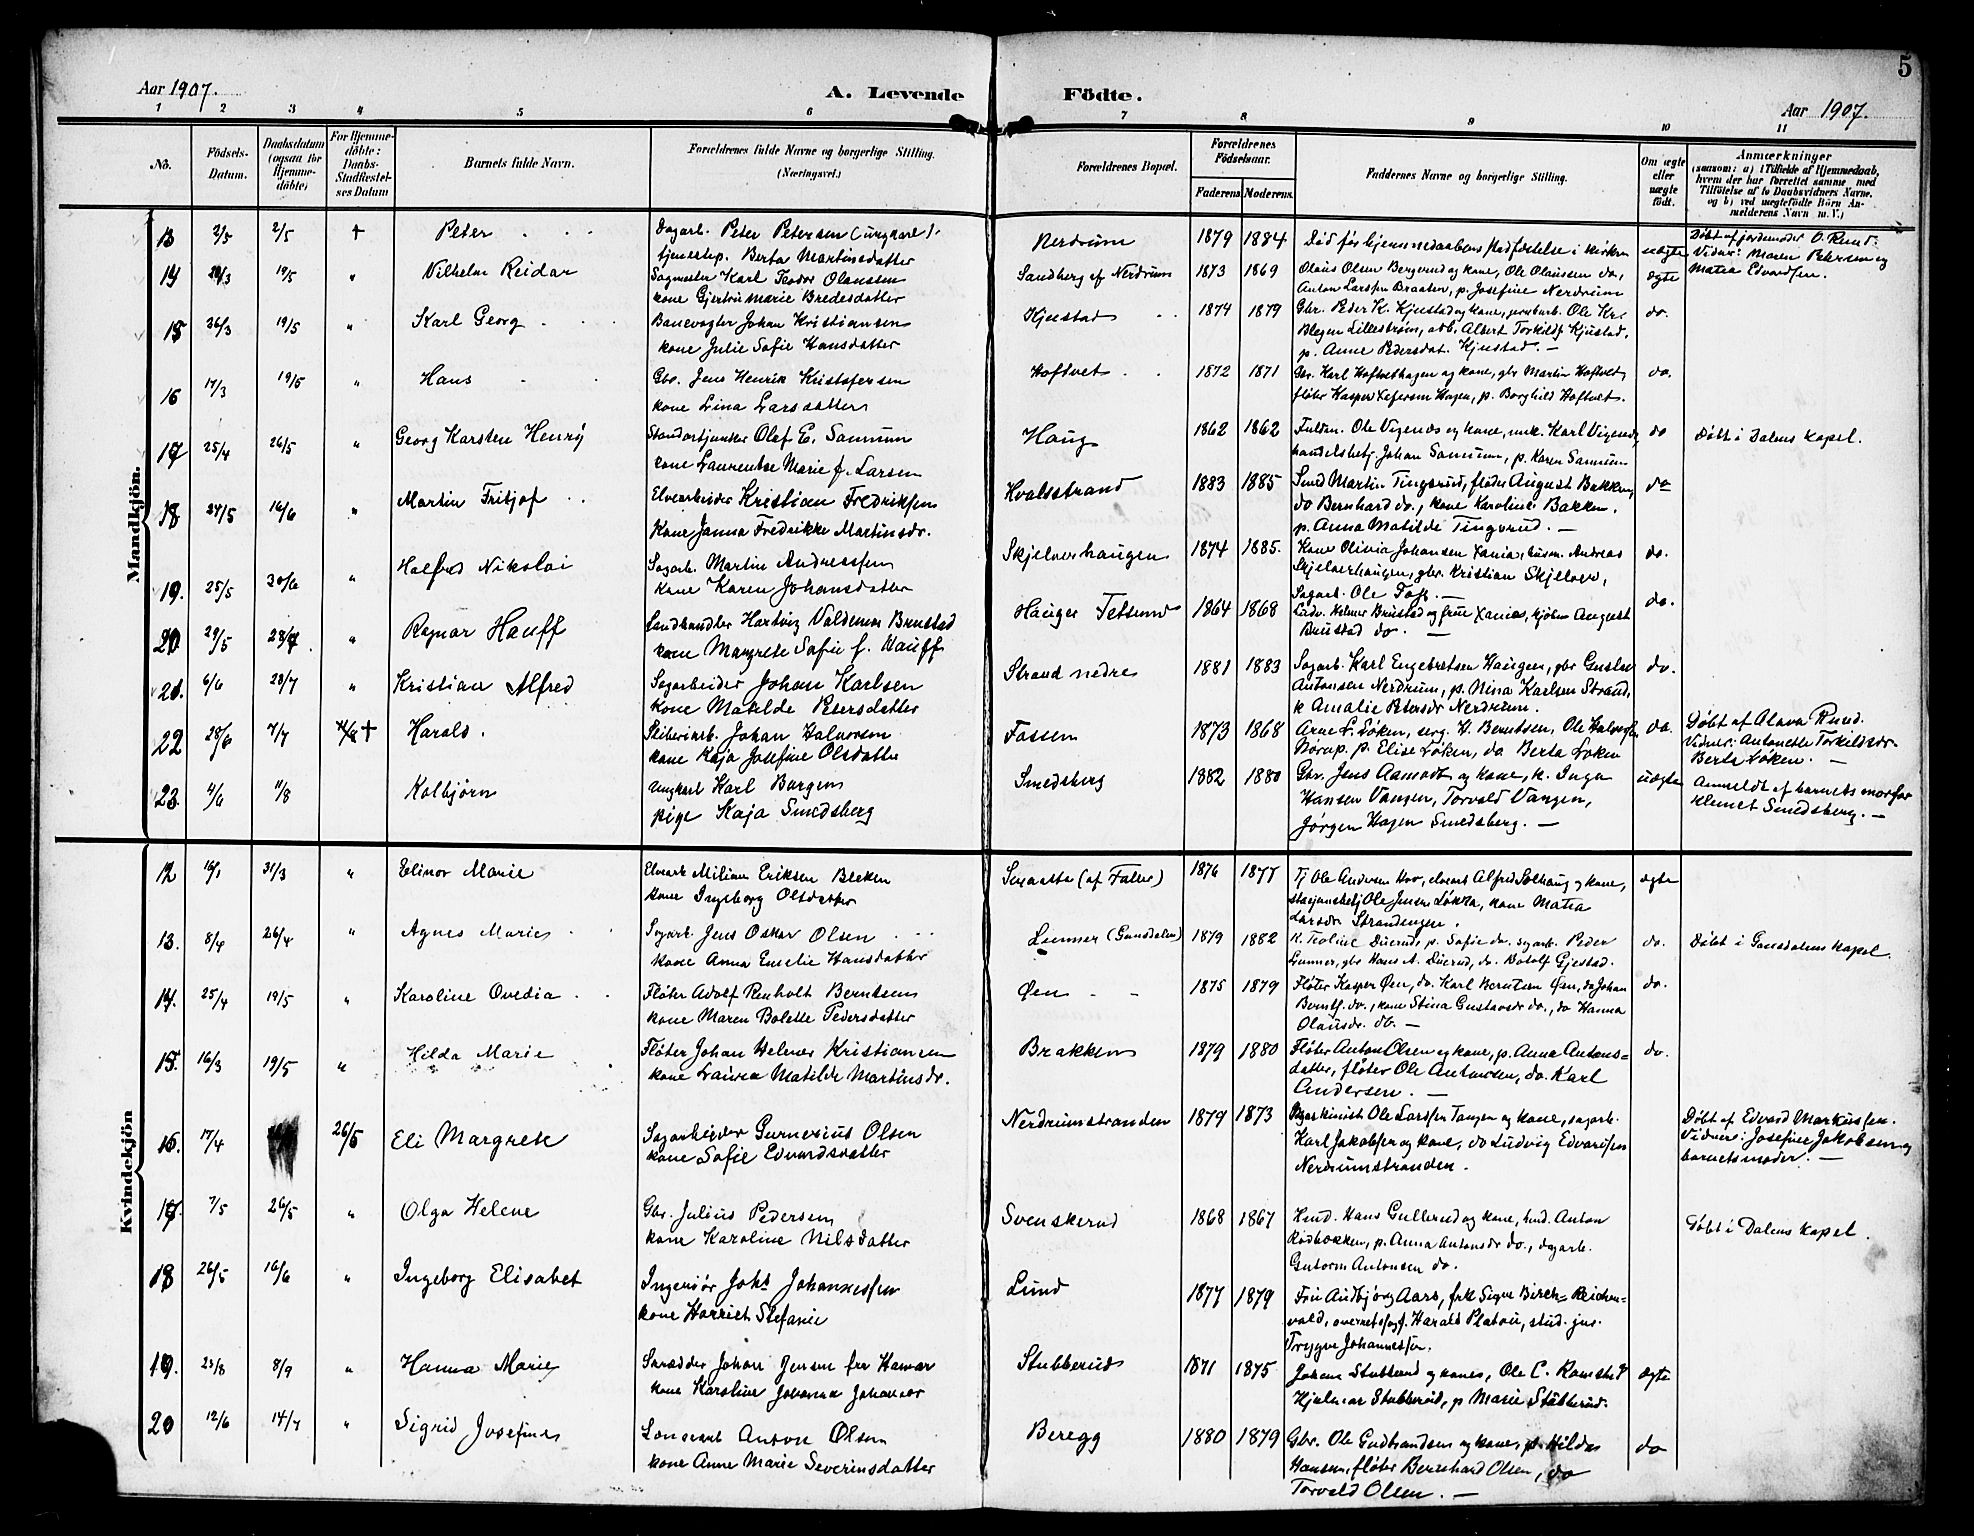 5
Aar 1907.
A. Levende
Födte.
Aar 1907.
1 2 3 4 5 6 7 8 9 10 11
No.
Födsels-
Datum.
Daabsdatum
(ogsaa for
Hjemme-
döbte)
For Hjemme-
döbte:
Daabs-
Stadfæstel-
ses Datum
Barnets fulde Navn.
Forældrenes fulde Navne og borgerlige Stilling.
(Næringsvei.)
Forældrenes Bopæl.
Forældrenes
Födselsaar.
Faderens Moderens
Faddernes Navne og borgerlige Stilling.
Om ægte
eller
uægte
födt.
Anmærkninger
(saasom: a) i Tilfælde af Hjemmedaab,
hvem der har forrettet samme med
Tilföielse af to Daabsvidners Navne,
og b) ved uægtefödte Börn An-
melderens Navn m. V.)
Mandkjön.
13 2/5 2/5 + Peter
Dagarb. Peter Petersen (ungkarl)
tjenestep. Berta Martinsdatter
Nerdrum 1879 1884
Död før hjemmedaabens stadfæstelse i kirken
uægte
Døbt af jordemoder O. Rud.
Vidner: Maren Petersen og
Matea Edvardsen.
14 19/5 " Vilhelm Reidar
Sagmester Karl Teodor Olaussen
kone Gjertrud Marie Bredesdatter
Sandberg af Nerdrum 1873 1869
Olaus Olsen Bergerud og kone, Ole Olaussen do,
Anton Larssen Braaten, p. Josefine Nerdrum
ægte
15 26/3 19/5 " Karl Georg
Banevogter Johan Kristiansen
kone Julie Sofie Hansdatter
Kjustad 1874 1879
Gbr. Peder K. Kjustad og kone, jernbarb. Ole Kr.
Lillestrøm, arb. Albert Torkilds. Kjustad,
p. Anne Pedersdat. Kjustad. —
do.
16 17/3 19/5 " Hans
Gbr. Jens Henrik Kristofersen
kone Lina Larsdatter
Hoftvet 1872 1871
Gbr. Karl Hoftvethagen og kone, gbr Martin Hoftvet,
fløter Kasper Hagen, p. Borghild Hoftvet.
do.
17 25/4 26/5 " Georg Karsten Henry
Olaf E. Sannum
kone Laurentze Marie f. Larsen
Haug 1862 1862
Ole Vigenæs og kone, Karl Vigenæs,
handelsbetj. Johan Sannum, p. Karen Sannum
do
Døbt i Dalens kapel.
18 24/5 16/6 " Martin Fritjof
Elvearbeider Kristian Fredriksen
Kone Janna Fredrikke Martinsdr.
Hvalsstrand 1883 1885
Smed Martin Tingsrud, fløter August Bakken,
do Bernhard do., kone Karoline Bakken,
p. Anna Matilde Tingsrud. —
do
19. 25/5 30/6 " Halfred Nikolai
Sagarb. Martin Andreassen
kone Karen Johansdatter
Skjelverhaugen 1874 1885.
Kone Olivia Johansen Xania, husm. Andreas
Skjelverhaugen, gbr. Kristian Skjelver,
Sagarb. Ole Foss. —
do.
20 29/5 28/7. " Ragnar Hauff
Landhandler Hartvig Valdemar Brustad
kone Margrete Sofie f. Hauff
Hauger Fetsund 1864 1868
Ladv. Helmer Brustad og frue Xania, kjøbm August
Brustad do. —
do.
21. 6/6 28/7 " Kristian Alfred
Sagarbeider Johan Karlsen
kone Matilde Petersdatter
Strand nedre 1881 1883
Sagarb. Karl Engebretsen Haugen, gbr Gustav
Antonsen Nerdrum, p. Nina Karlsen Strand,
k Amalie Petersdr Nerdrum.
do.
22 28/6 7/7 + Harald.
Skiberiarb. Johan Halvorsen
kone Kaja Josefine Olsdatter
Fossem 1873 1868
Arne L. Løken, serg. H. Berntsen, Ole Halvorsen
Børup, p. Elise Løken, do Berta Løken
do.
Døbt af Alava Rud.
Vidner: Antonette Torkildsdr.
Berta Løken. —
23. 4/6 11/8 Kolbjørn
ungkarl Karl Borgen
pige Kaja Smedsberg
Smedsberg 1882 1880
Gbr. Jens Aamodt og kone, k. Inga
Hansen Vangen, Torvald Vangen,
Jørgen Hagen Smedsberg. —
uægte
Anmeldt af barnets morfar
Klemet Smedsberg. —
Kvindekjön
12 31/3 " Elinor Marie
Elvearb Milian Eriksen Bleken
kone Ingeborg Olsdatter
(af Faller) 1876 1877
Tj Ole Andersen Hov, elvearb Alfred Solhaug og kone,
stasjonsbetj Ole Jensen Løkka, kone Matea
Larsdr Strandengen.
ægte
13. 8/4 26/4 " Agnes Marie
Sagarb. Jens Oskar Olsen
kone Anna Emelie Hansdatter
Lunner (Gansdalen) 1879 1882
K. Teoline Duerud, p. Sofie do. sagarb. Peder
Lunner, gbr Hans A. Duerud, do. Botolf Gjestad.
do.
Døbt i Gansdalens kapel.
14. 25/4 19/5 " Karoline Ovedia
Fløter Adolf Renholt Berntsen
kone Maren Bolette Pedersdatter
Øen 1875 1879
Fløter Kasper Øen, do. Karl Berntsen Øen, do Johan
Berntss. do., kone Stina Gustavsdr do., do Hanna
Olausdr. do. —
do.
15. 16/3 19/5 " Hilda Marie
Fløter Johan Helmer Kristiansen
kone Laura Matilde Martinsdr.
Brakken 1879 1880
Fløter Anton Olsen og kone, p. Anna Antons=
datter, fløter Ole Antonsen, do. Karl
Andersen. —
do.
16. 17/4 26/5 Eli Margrete
Sagarbeider Gunerius Olsen
kone Sofie Edvardsdatter
Nerdrumstranden 1879 1873
Ole Larssen Tangen og kone, sagarb.
Karl Jakobsen og kone, do Ludvig Edvardsen
Nerdrumstranden.
Døbt af Edvard Markussen.
Vidner: Josefine Jakobsen og
barnets moder. —
17. 7/5 26/5 " Olga Helene
Gbr. Julius Pedersen
kone Karoline Nilsdatter
Svenskerud 1868 1867
Hmd. Hans Gullerud og kone, hmd. Anton
Rødbakken, p. Anna Antonsdr do., dagarb.
Gutorm Antonsen do.
Døbt i Dalens kapel.
18 26/5 16/6 " Ingeborg Elisabet
Ingeniør Johs Johannessen
kone Harriet Stefanie
Lund 1877 1879
Fru Audbjørg Aars, frk Signe Birch=Reichen=
vald, overretssagf. Harald Platou, stud. jus.
Trygve Johannessen.
19. 8/9 " Hanna Marie
Johan Jensen fra Hamar
kone Karoline Johanna
Stubberud 1871 1875
Johan Stubberud og kone, Ole C. Ramstad
Hjalmar Stubberud, p Marie Stubberud.
ægte
20 12/6 14/7 " Sigrid Josefine
Anton Olsen
kone Anne Marie Severinsdatter
Beregg 1880 1879
Gbr. Ole Gudbrandsen og kone, p. Hilda
Hansen, fløter Bernhard Olsen, do
Torvald Olsen. —
do